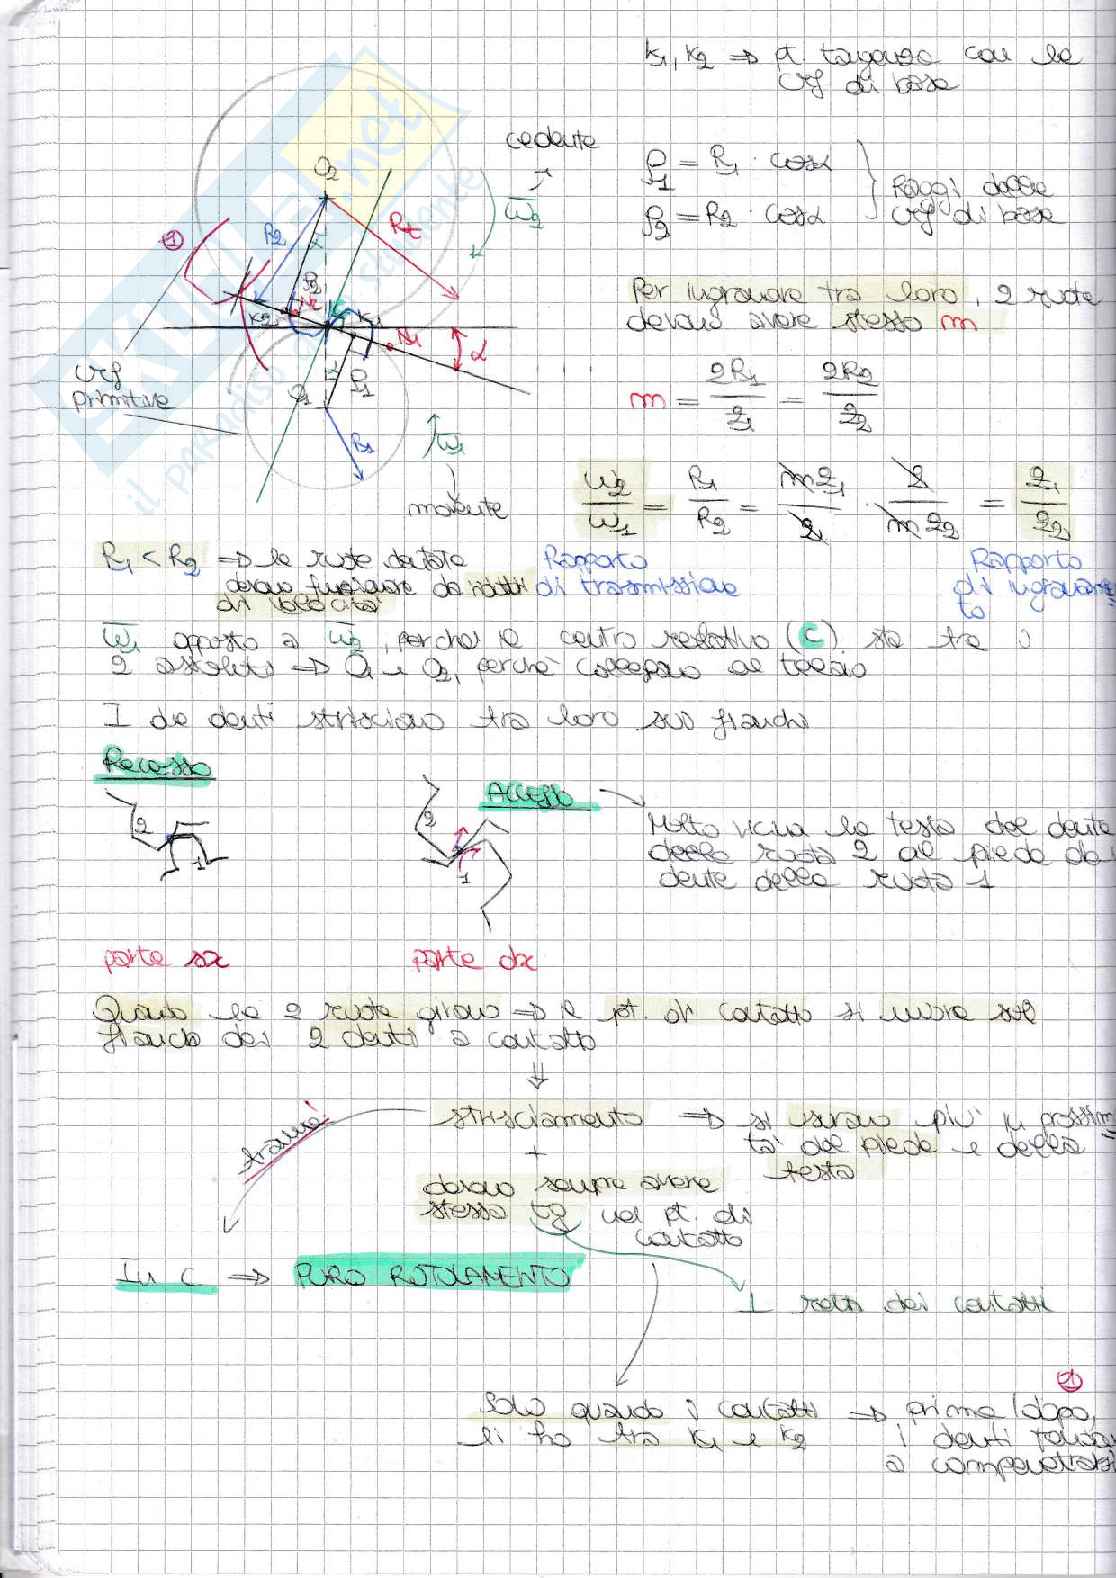 K1, K2 ⇒ pt. tangenza con le
crf di base
cedente
ρ1 = R1 · cosα
ρ2 = R2 · cosα
Raggi delle
crf di base
O2
ω2
R2
ρ2
K2
K1
N1
α
ρ1
O1
R1
ω1
movente
crf
primitive
Per ingranare tra loro, 2 ruote
devono avere stesso m
m = 2R1/z1 = 2R2/z2
ω2/ω1 = R1/R2 = mz1/2 · 2/mz2 = z1/z2
R1 < R2 ⇒ le ruote dentate
devono funzionare da riduttori
di velocità
Rapporto
di trasmissione
Rapporto
di ingranamen
to
ω1 opposto a ω2, perché il centro relativo (C) sta tra i
2 assoluti ⇒ O1 e O2, perché collegano al telaio
I due denti strisciano tra loro sui fianchi
Recesso
Accesso
2
1
2
1
Molto vicina la testa del dente
della ruota 2 al piede del
dente della ruota 1
parte sx
parte dx
Quando le 2 ruote girano ⇒ il pt. di contatto si muove sul
fianco dei 2 denti a contatto
⇓
tranne
strisciamento ⇒ si usurano più in prossimi
tà del piede e della
testa
+
devono sempre avere
stessa tg nel pt. di
contatto
In C ⇒ PURO ROTOLAMENTO
⊥ retta dei contatti
Solo quando i contatti ⇒ prima/dopo,
li ho tra K1 e K2
i denti
a